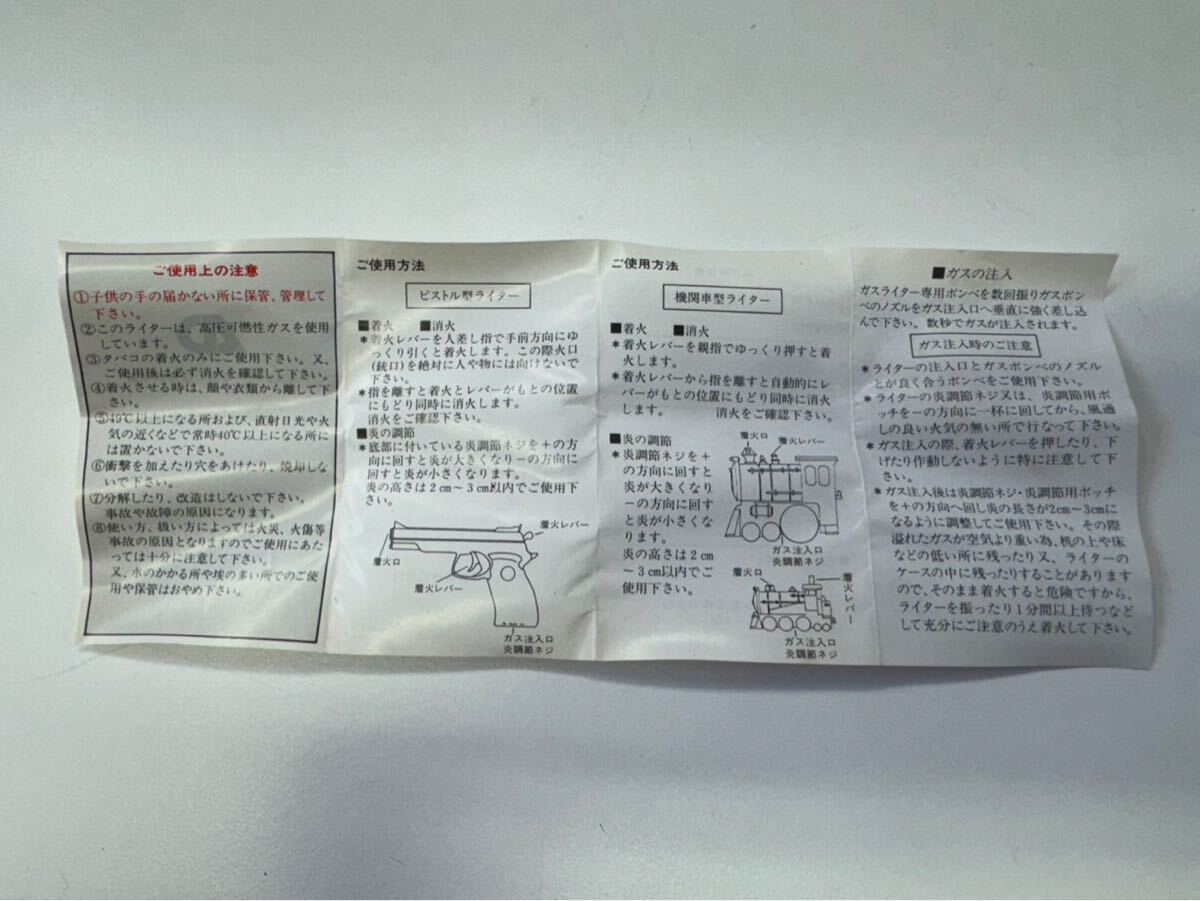 ご使用上の注意
①子供の手の届かない所に保管、管理して
下さい。
②このライターは、高圧可燃性ガスを使用
しています。
③タバコの着火のみにご使用下さい。又、
ご使用後は必ず消火を確認して下さい。
④着火させる時は、顔や衣類から離して下
さい。
⑤40℃以上になる所および、直射日光や火
気の近くなどで常時40℃以上になる所に
は置かないで下さい。
⑥衝撃を加えたり穴をあけたり、焼却しな
いで下さい。
⑦分解したり、改造はしないで下さい。
事故や故障の原因になります。
⑧使い方、扱い方によっては火災、火傷等
事故の原因となりますのでご使用にあた
っては十分に注意して下さい。
又、水のかかる所や埃の多い所でのご使
用や保管はおやめ下さい。
ご使用方法
ピストル型ライター
■着火 ■消火
*着火レバーを人差し指で手前方向にゆ
っくり引くと着火します。この際火口
(銃口)を絶対に人や物には向けないで
下さい。
*指を離すと着火とレバーがもとの位置
にもどり同時に消火します。
消火をご確認下さい。
■炎の調節
*底部に付いている炎調節ネジを+の方
向に回すと炎が大きくなり−の方向に
回すと炎が小さくなります。
炎の高さは2cm〜3cm以内でご使用下
さい。
着火レバー
着火口
着火レバー
ガス注入口
炎調節ネジ
ご使用方法
機関車型ライター
■着火 ■消火
*着火レバーを親指でゆっくり押すと着
火します。
*着火レバーから指を離すと自動的にレ
バーがもとの位置にもどり同時に消火
します。 消火をご確認下さい。
■炎の調節
*炎調節ネジを+
の方向に回すと
炎が大きくなり
−の方向に回す
と炎が小さくな
ります。
炎の高さは2cm
〜3cm以内でご
使用下さい。
着火口
着火レバー
ガス注入口
炎調節ネジ
着火口
着火レバー
ガス注入口
炎調節ネジ
■ガスの注入
ガスライター専用ボンベを数回振りガスボン
ベのノズルをガス注入口へ垂直に強く差し込
んで下さい。数秒でガスが注入されます。
ガス注入時のご注意
*ライターの注入口とガスボンベのノズル
とが良く合うボンベをご使用下さい。
*ライターの炎調節ネジ又は、炎調節用ボ
ッチを−の方向に一杯に回してから、風通
しの良い火気の無い所で行なって下さい。
*ガス注入の際、着火レバーを押したり、下
げたり作動しないように特に注意して下
さい。
*ガス注入後は炎調節ネジ・炎調節用ボッチ
を+の方向へ回し炎の長さが2cm〜3cmに
なるように調整してご使用下さい。その際
溢れたガスが空気より重い為、机の上や床
などの低い所に残ったり又、ライターの
ケースの中に残ったりすることがあります
ので、そのまま着火すると危険ですから、
ライターを振ったり1分間以上待つなど
して充分にご注意のうえ着火して下さい。